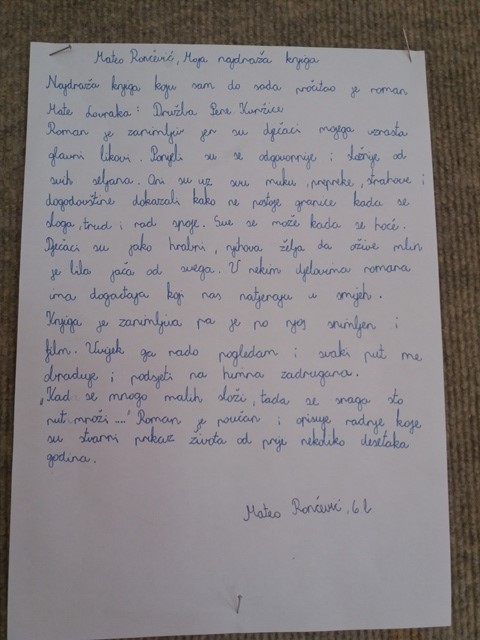 Mateo Rončević, Moja najdraža knjiga
Najdraža knjiga koju sam do sada pročitao je roman
Mate Lovraka: Družba Pere Kvržice
Roman je zanimljiv jer su dječaci mojega uzrasta
glavni likovi. Ponijeli su se odgovornije i složnije od
svih seljana. Oni su uz svu muku, prepreke, strahove i
dogodovštine dokazali kako ne postoje granice kada se
sloga, trud i rad spoje. Sve se može kada se hoće.
Dječaci su jako hrabri, njihova želja da ožive mlin
je bila jača od svega. U nekim djelovima romana
ima događaja koji nas natjeraju u smijeh.
Knjiga je zanimljiva pa je po njoj snimljen i
film. Uvijek ga rado pogledam i svaki put me
obraduje i podsjeti na himnu zadrugana.
"Kad se mnogo malih složi, tada se snaga sto
put množi ...." Roman je poučan i opisuje radnje koje
su stvarni prikaz života od prije nekoliko desetaka
godina.
Mateo Rončević, 6.b